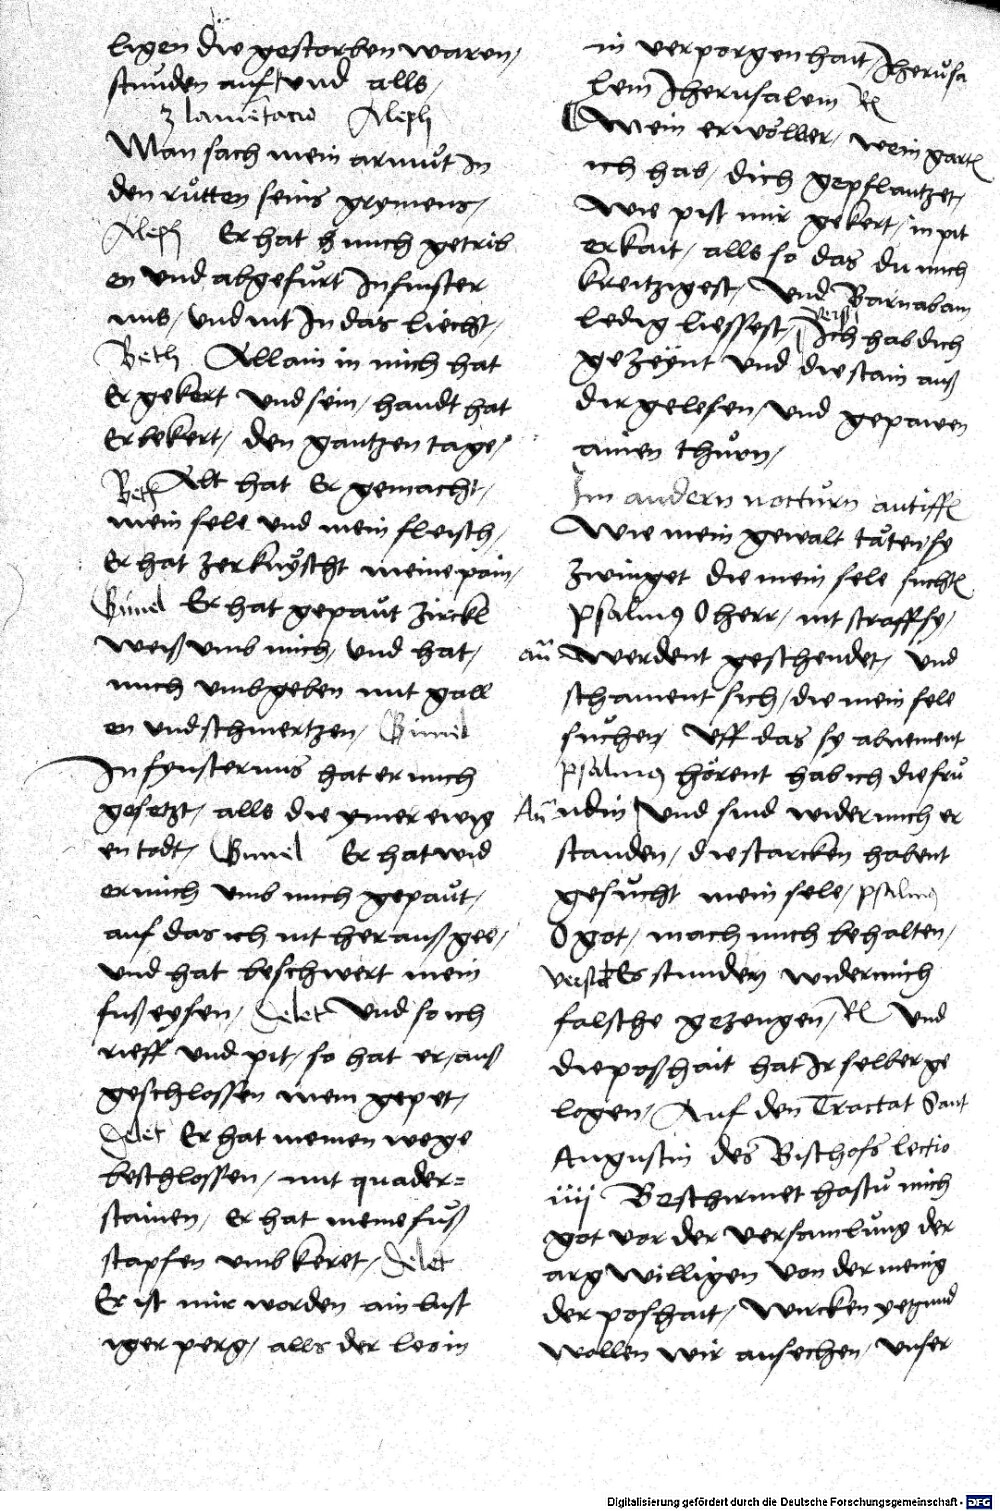 ligen die gestorben waren/
stůnden auf/ vnd alls/
3 lametacio Aleph
Man sach mein armůt In
den růtten seins grymens/
Aleph Er hat mich getrib
en vnd abgefůrt In finster
nus/ vnd nit In das liecht/
Beth Allain in mich hat
Er gekert vnd sein/ handt hat
Er bekert/ den gantzen tage/
Beth Alt hat Er gemacht/
mein sele vnd mein fleisch/
Er hat zerknyscht meine pain/
Gimel Er hat gepaůt zirckl
weiß vmb mich/ vnd hat/
mich vmbgeben mit gall
en vnd schmertzen/ Gimel
In fynsternus hat er mich
gesetzt/ alls die ymer ewig
en todt/ Gimel Er hat wid
er mich vmb mich gepaůt/
auf das ich nit herauß gee/
vnd hat beschwert mein
fuß eysen/ Delet vnd so ich
rieff vnd pit/ so hat er/ auß
geschlossen mein gepet/
Delet Er hat meinen wege
beschlossen/ mit quader=
stainen/ Er hat meine fůß
stapfen vmbkeret/ Delet
Er ist mir worden ain lust
iger perg/ alls der leo in
in verporgenhait/ Jherůsa
lem Jherusalem Rl
Mein erwölter/ weingartt
ich hab/ dich gepflantzet/
wie pist mir gekert/ in pit
erkait/ alls so das du mich
kreitzigest/ vnd Barnabam
ledig liessest/ vers Ich hab dich
gezeÿnt vnd die stain auß
dir gelesen/ vnd gepawen
ainen thůrn/
Im andern nottůrn antiff
wie mein gewalt täten/ sy
zwinget die mein sele sucht
psalmus O herr/ nit straff sy/
an werdent geschendet/ vnd
schament sich/ die mein sele
sůchen/ vff das sy abnement
psalmus hörent hab ich die frů
An ndin vnd sind wider mich er
standen/ die starcken habent
gesůcht mein sele/ psalmus
O got/ mach mich behalten/
Es stunden wider mich
falsche gezeugen/ Rl vnd
die poßhait hat Ir selber ge
logen/ Auf den Tractat Sant
Augustin des Bischofs lectio
iiij Beschirmet hastů mich
got vor der versamlůng der
argwilligen von der menig
der poshait/ wircken yezund
wollen wir ansechen/ vnser
Digitalisierung gefördert durch die Deutsche Forschungsgemeinschaft - DFG